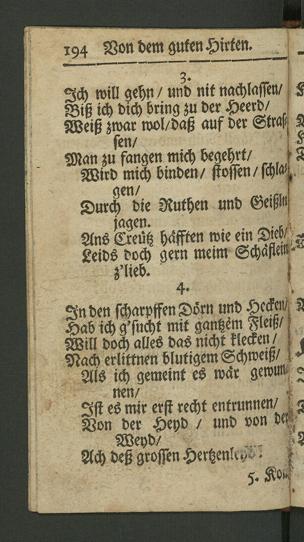 194 Von dem guten Hirten.
3.
Ich will gehn / und nit nachlassen /
Biß ich dich bring zu der Heerd /
Weiß zwar wol / daß auf der Stras-
sen /
Man zu fangen mich begehrt /
Wird mich binden / stossen / schla-
gen /
Durch die Ruthen und Geißln
jagen.
Ans Creütz häfften wie ein Dieb /
Leids doch gern meim Schäflein
z'lieb.
4.
In den scharpffen Dörn und Hecken /
Hab ich g'sucht mit gantzem Fleiß /
Will doch alles das nicht klecken /
Nach erlittnen blutigem Schweiß /
Als ich gemeint es wär gewun-
nen /
Ist es mir erst recht entrunnen /
Von der Heyd / und von der
Weyd /
Ach deß grossen Hertzenleyd!
5. Kom